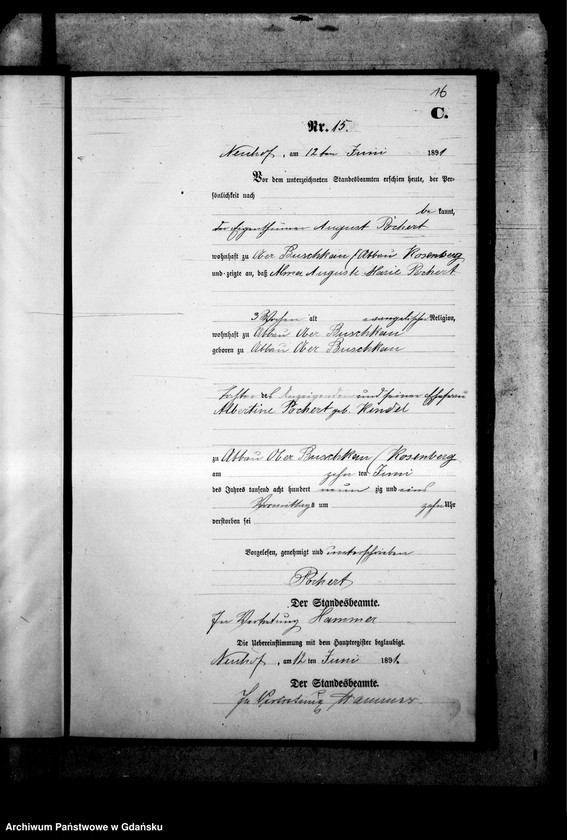 16
C.
Nr. 15.
Neuhof, am 12 ten Juni 1891
Vor dem unterzeichneten Standesbeamten erschien heute, der Per-
sönlichkeit nach
be kannt,
der Eigenthümer August Pochert
wohnhaft zu Ober Buschkau / Abbau Rosenberg
und zeigte an, daß Auguste Marie Pochert
3 Wochen alt evangelischer Religion,
wohnhaft zu Abbau Ober Buschkau
geboren zu Abbau Ober Buschkau
Tochter des Anzeigenden und seiner Ehefrau
Albertine Pochert geb. Kendel
zu Abbau Ober Buschkau / Rosenberg
am zehn ten Juni
des Jahres tausend acht hundert neun zig und eins
Vormittags um zehn Uhr
verstorben sei
Vorgelesen, genehmigt und unterschrieben
Pochert
Der Standesbeamte.
In Vertretung Hammer
Die Uebereinstimmung mit dem Hauptregister beglaubigt.
Neuhof, am 12 ten Juni 1891.
Der Standesbeamte.
In Vertretung Hammer.
Archiwum Państwowe w Gdańsku